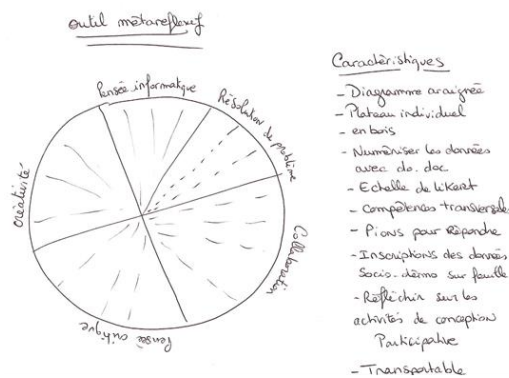 outil métareflexif
Pensée informatique
Résolution de problème
Collaboration
Pensée critique
Créativité
Caractéristiques
- Diagramme araignée
- Plateau individuel
- en bois
- Numériser les données
avec do. doc.
- Echelle de Likert
- Compétences transversale
- Pions pour répondre
- Inscriptions des données
Socio-démo sur feuille
- Réfléchir sur les
activités de conception
Participative
- Transportable